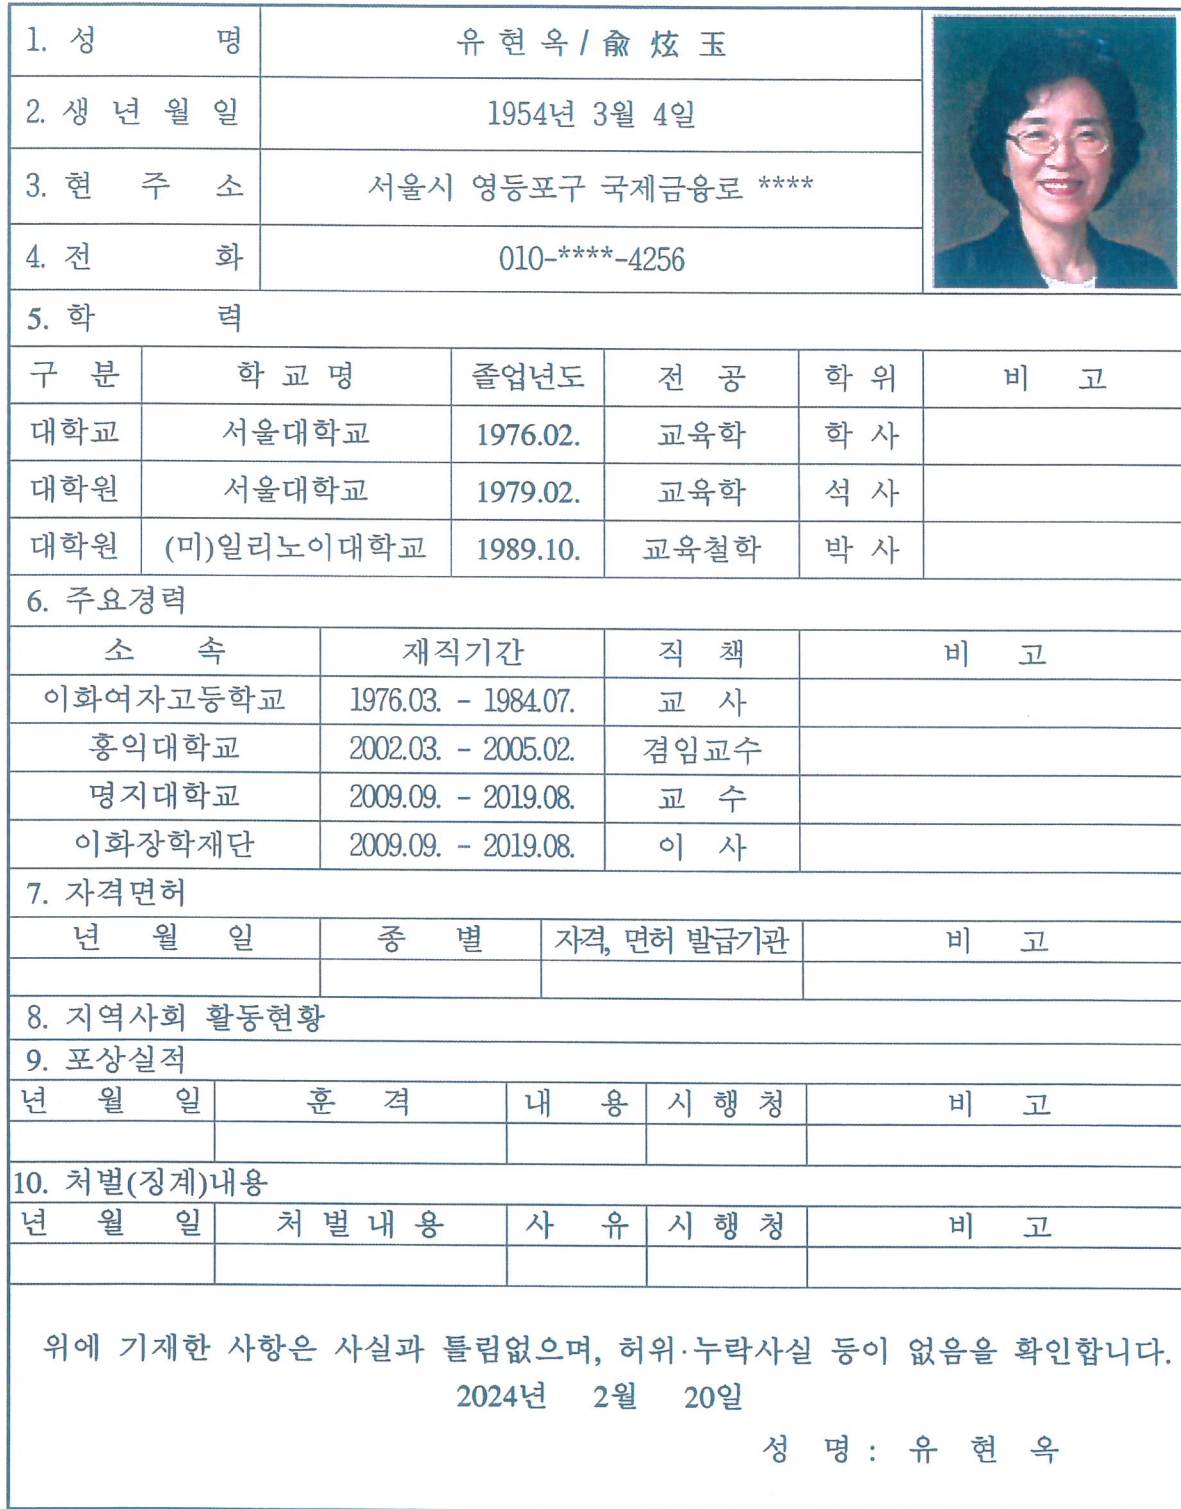 1. 성 명 유 현 옥 / 兪 炫 玉
2. 생 년 월 일 1954년 3월 4일
3. 현 주 소 서울시 영등포구 국제금융로 ****
4. 전 화 010-****-4256
5. 학 력
구 분 학 교 명 졸업년도 전 공 학 위 비 고
대학교 서울대학교 1976.02. 교육학 학 사
대학원 서울대학교 1979.02. 교육학 석 사
대학원 (미)일리노이대학교 1989.10. 교육철학 박 사
6. 주요경력
소 속 재직기간 직 책 비 고
이화여자고등학교 1976.03. - 1984.07. 교 사
홍익대학교 2002.03. - 2005.02. 겸임교수
명지대학교 2009.09. - 2019.08. 교 수
이화장학재단 2009.09. - 2019.08. 이 사
7. 자격면허
년 월 일 종 별 자격, 면허 발급기관 비 고
8. 지역사회 활동현황
9. 포상실적
년 월 일 훈 격 내 용 시 행 청 비 고
10. 처벌(징계)내용
년 월 일 처 벌 내 용 사 유 시 행 청 비 고
위에 기재한 사항은 사실과 틀림없으며, 허위·누락사실 등이 없음을 확인합니다.
2024년 2월 20일
성 명 : 유 현 옥